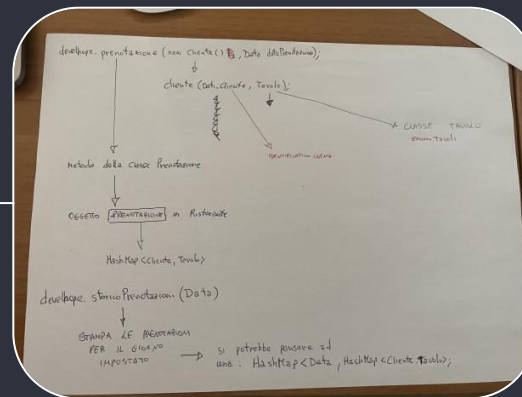 develhope.prenotazione (new Cliente() , Data dataPrenotazione);
cliente (Dati_Cliente, Tavolo);
CLASSE TAVOLO
enum Tavoli
IDENTIFICATIVO CLIENTE
Metodo della Classe Prenotazione
OGGETTO PRENOTAZIONE in Ristorante
HashMap <Cliente, Tavolo>
develhope.stornoPrenotazioni (Data)
STAMPA LE PRENOTAZIONI
PER IL GIORNO
IMPOSTATO
si potrebbe pensare ad
una : HashMap <Data, HashMap <Cliente, Tavolo>;